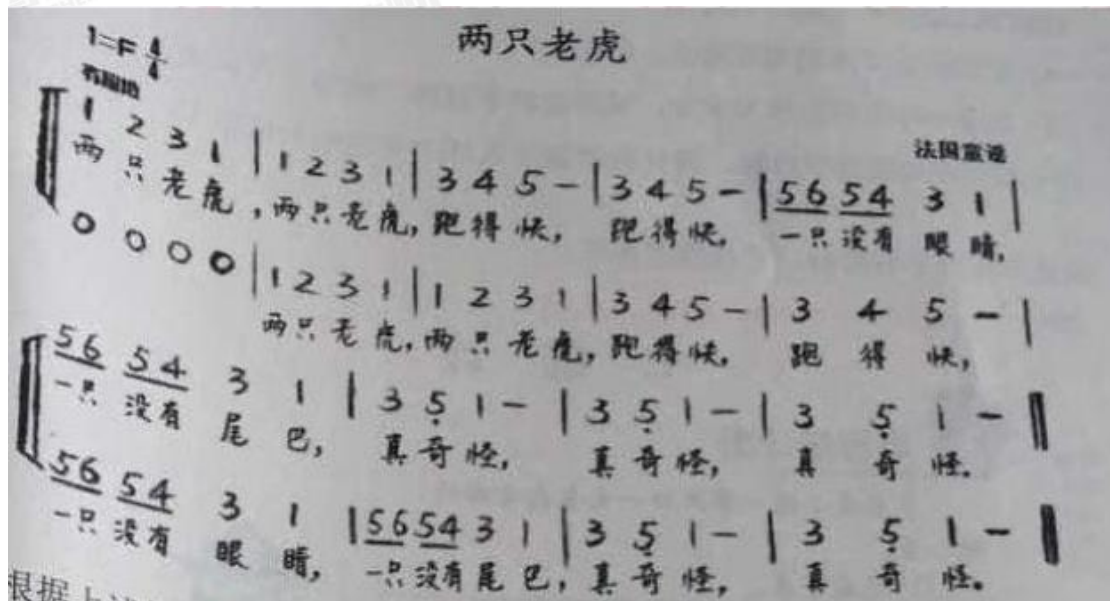 两只老虎
1=F 4/4
稍慢地
法国童谣
1 2 3 1 | 1 2 3 1 | 3 4 5 - | 3 4 5 - | 56 54 3 1 |
两只老虎,两只老虎,跑得快, 跑得快, 一只没有眼睛,
0 0 0 0 | 1 2 3 1 | 1 2 3 1 | 3 4 5 - | 3 4 5 - |
两只老虎,两只老虎,跑得快, 跑得快,
56 54 3 1 | 3 5̣ 1 - | 3 5̣ 1 - | 3 5̣ 1 - ‖
一只没有尾巴, 真奇怪, 真奇怪, 真奇怪。
56 54 3 1 | 56 54 3 1 | 3 5̣ 1 - | 3 5̣ 1 - ‖
一只没有眼睛, 一只没有尾巴,真奇怪, 真奇怪。
根据上